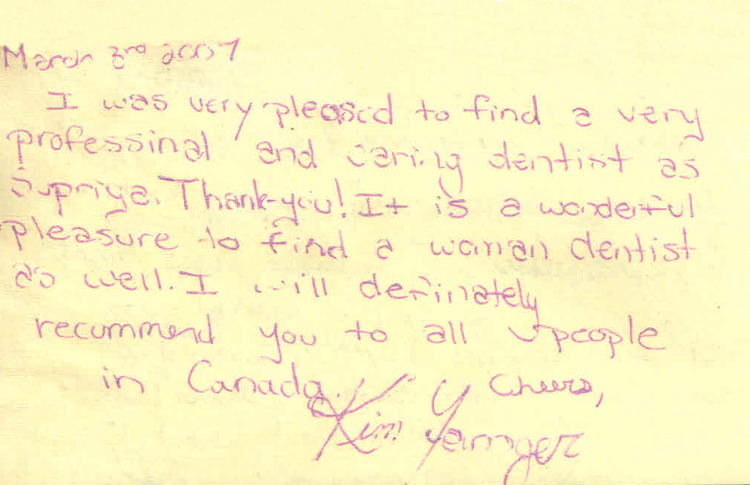 March 3rd 2007
I was very pleased to find a very
professinal and caring dentist as
Supriya. Thank-you! It is a wonderful
pleasure to find a woman dentist
as well. I will definately
recommend you to all people
in Canada.
Cheers,
Kim